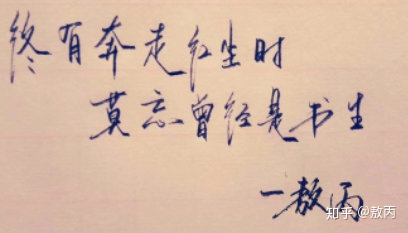 终有奔走红尘时
莫忘曾经是书生
一敖丙
知乎 @敖丙